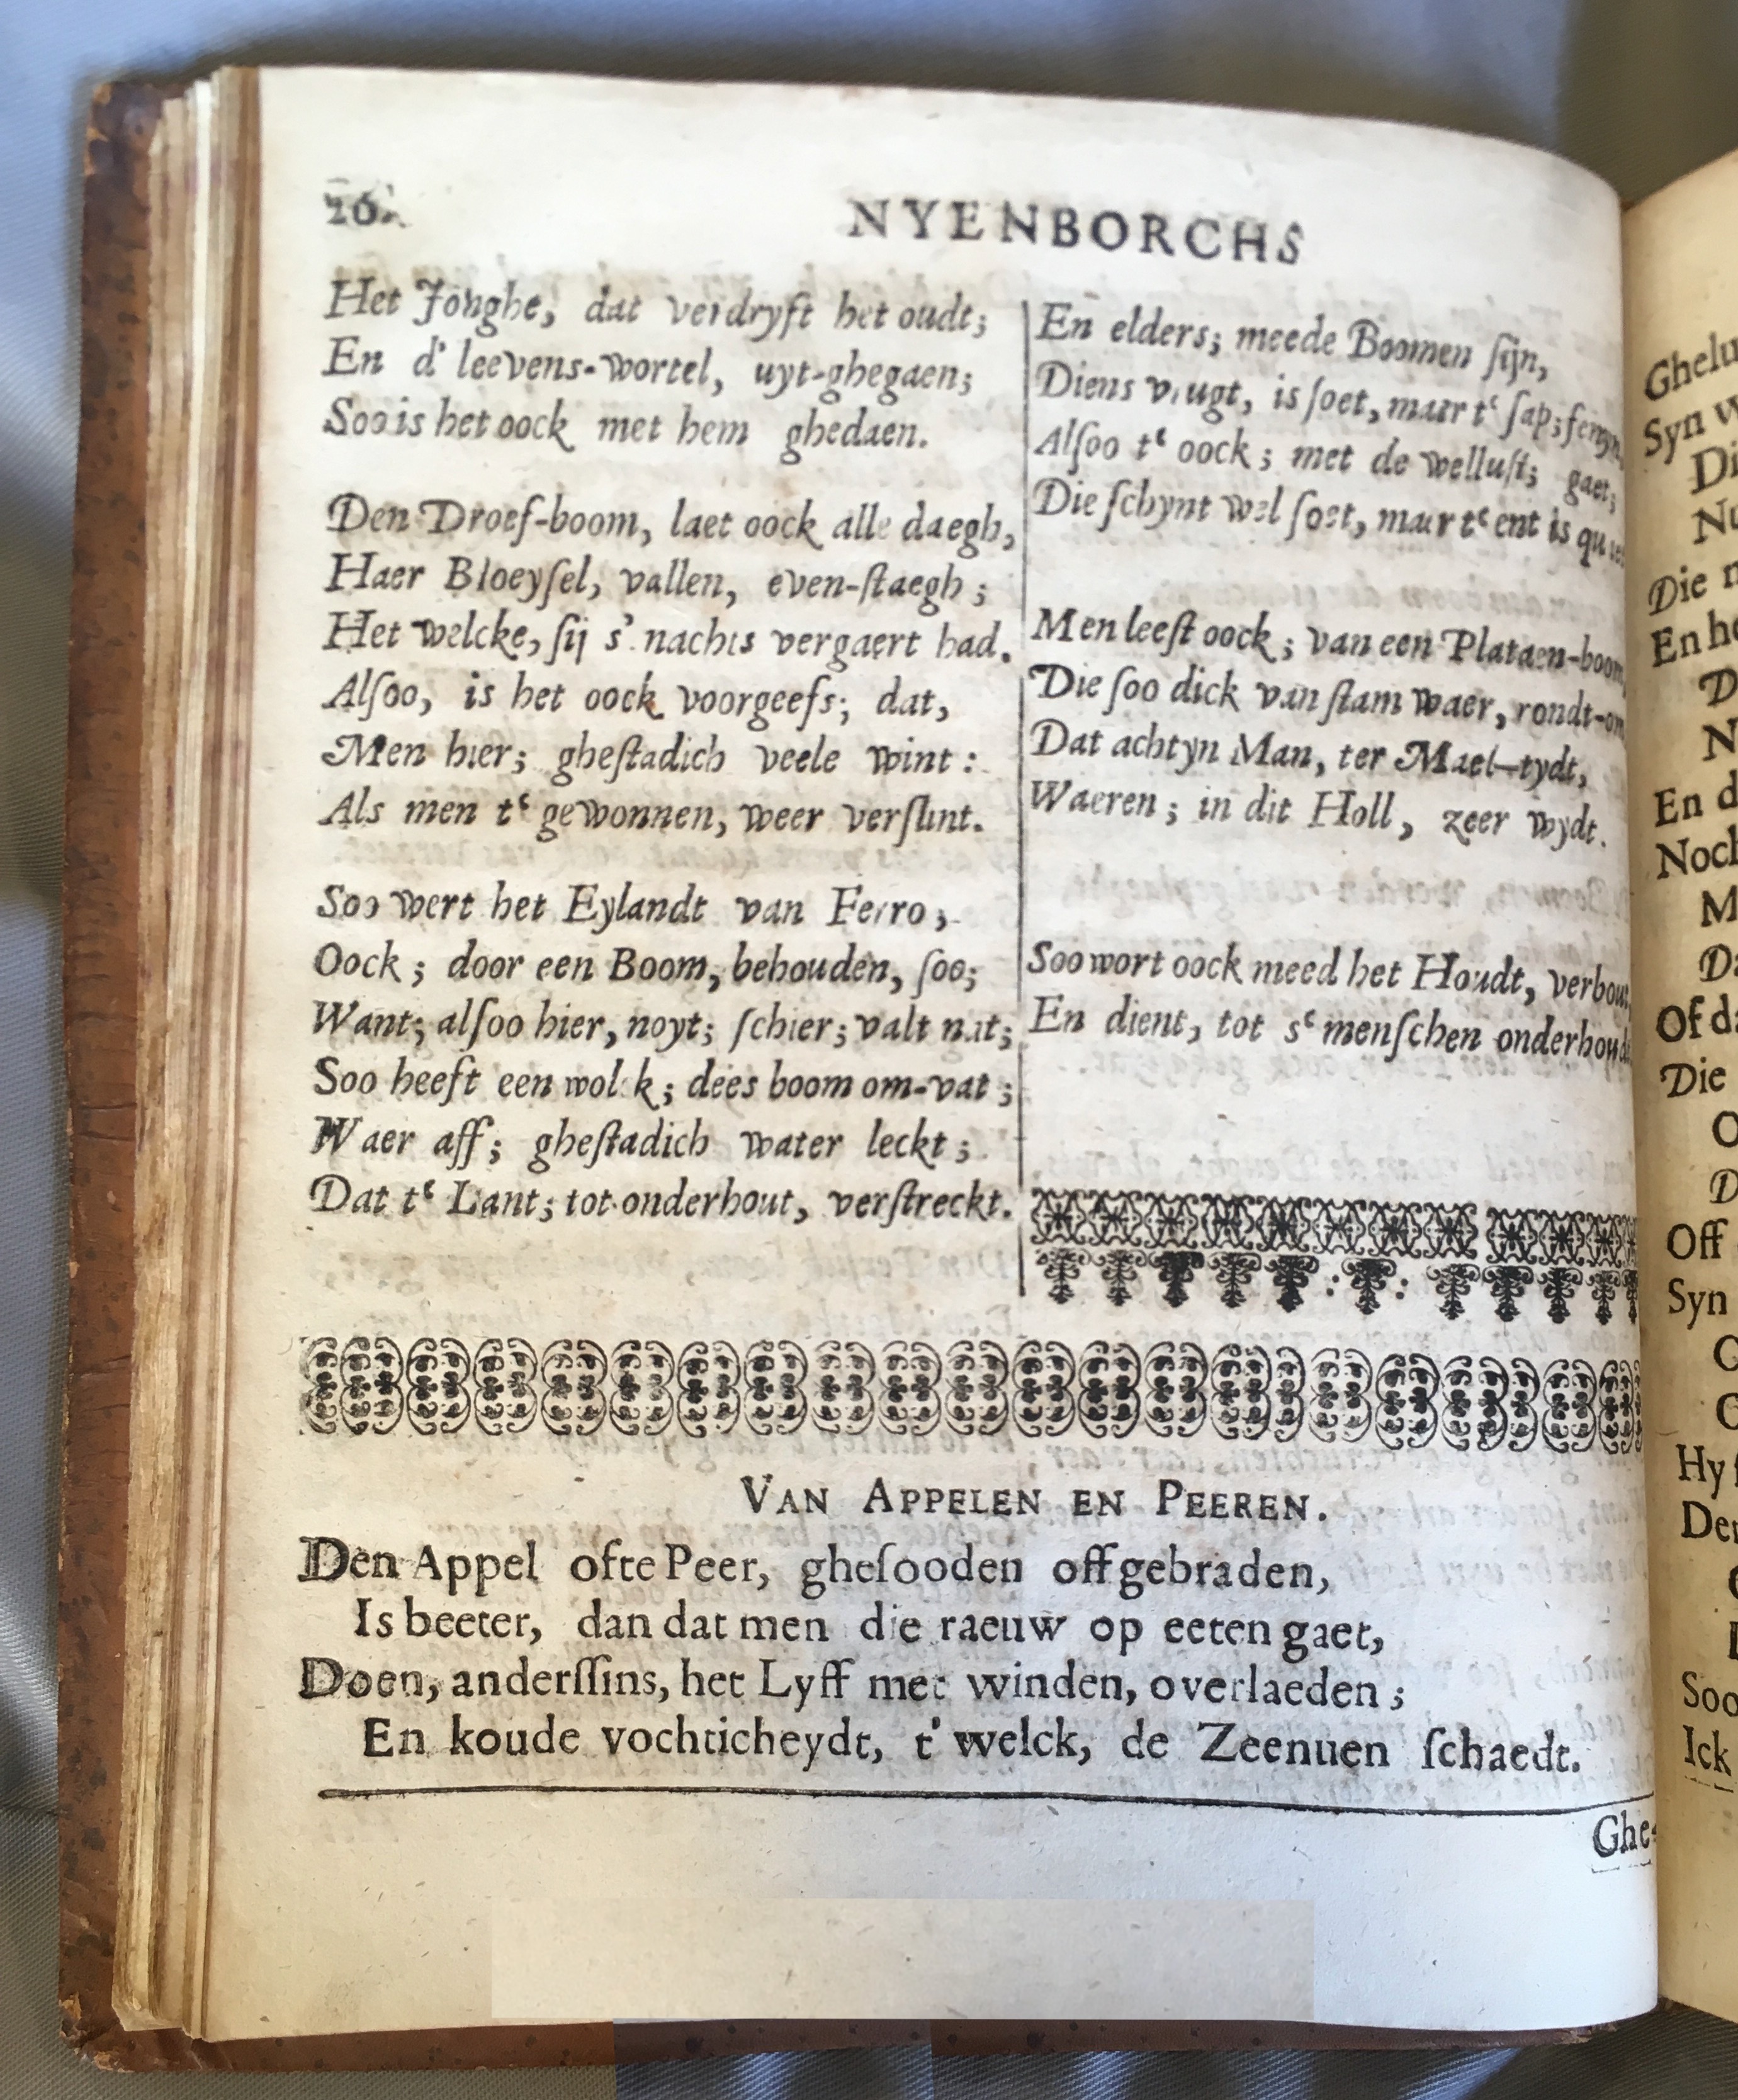 26.
NYENBORCHS
Het Jonghe, dat verdryft het oudt;
En d' leevens-wortel, uyt-ghegaen;
Soo is het oock met hem ghedaen.
Den Droef-boom, laet oock alle daegh,
Haer Bloeysel, vallen, even-ſtaegh;
Het welcke, ſij s'. nachts vergaert had.
Alſoo, is het oock voorgeefs; dat,
Men hier; gheſtadich veele wint:
Als men t‘ gewonnen, weer verſlint.
Soo wert het Eylandt van Ferro;
Oock; door een Boom, behouden, ſoo;
Want; alſoo hier, noyt; ſchier; valt nat;
Soo heeft een wolck; dees boom om-vat;
Waer aff; gheſtadich water leckt;
Dat t‘ Lant; tot onderhout, verſtreckt.
En elders; meede Boomen ſijn,
Diens vrugt, is ſoet, maar t‘ ſap; fenyn.
Alſoo t‘ oock; met de welluſt; gaet;
Die ſchynt wel ſoet, maar t‘ ent is
Men leeſt oock; van een Plataen-boom
Die ſoo dick van ſtam waer, rondt-om
Dat achtyn Man, ter Mael-tydt,
Waeren; in dit Holl, zeer wydt.
Soo wort oock meed het Houdt, verbout
En dient, tot s‘ menſchen onderhoudt
VAN APPELEN EN PEEREN.
Den Appel ofte Peer, gheſooden off gebraden,
Is beeter, dan dat men die raeuw op eeten gaet,
Doen, anderſſins, het Lyff met winden, overlaeden;
En koude vochticheydt, t' welck, de Zeenuen ſchaedt.
Ghe-
Ghelu
Syn
Di
Nu
Die
En
D
N
En d
Noch
M
Da
Of da
Die
O
D
Off
Syn
Hy
Den
Soo
Ick